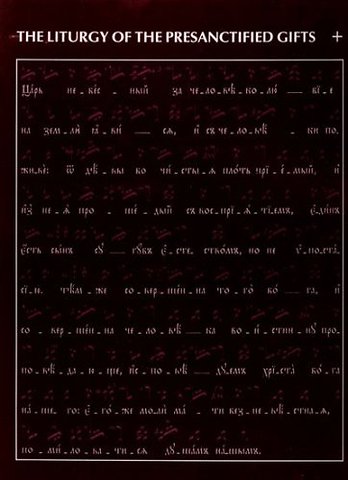 THE LITURGY OF THE PRESANCTIFIED GIFTS +
Цр҃ь не бе́с ный за че ло вѣ ко лю́ бі е
на зем ли́ ꙗ ви́ сѧ, и҆ съ че ло вѣ ки по
жи вѐ: ѿ дѣ́ вы бо чи́ сты ѧ пло́ть прі е́ мый, и҆
и҆з̾ не ѧ̀ про ше́ дый съ вос прі ѧ́ ті емъ, є҆ ди́нъ
є҆́сть сы́нъ су гу́бъ є҆ сте ство́мъ, но не ѵ҆ по ста́
сі ю. тѣ́м же со вер ше́н на то го̀ бо́ га, и҆
со вер ше́н на че ло вѣ́ ка во и́ стин ну про
по вѣ́ да ю ще, и҆с по вѣ́ ду емъ хрі ста̀ бо́ га
на́ ше го: є҆ го́ же мо лѝ ма́ ти без не вѣ́ стна ѧ,
по ми́ ло ва ти сѧ ду ша́мъ на́ шымъ.